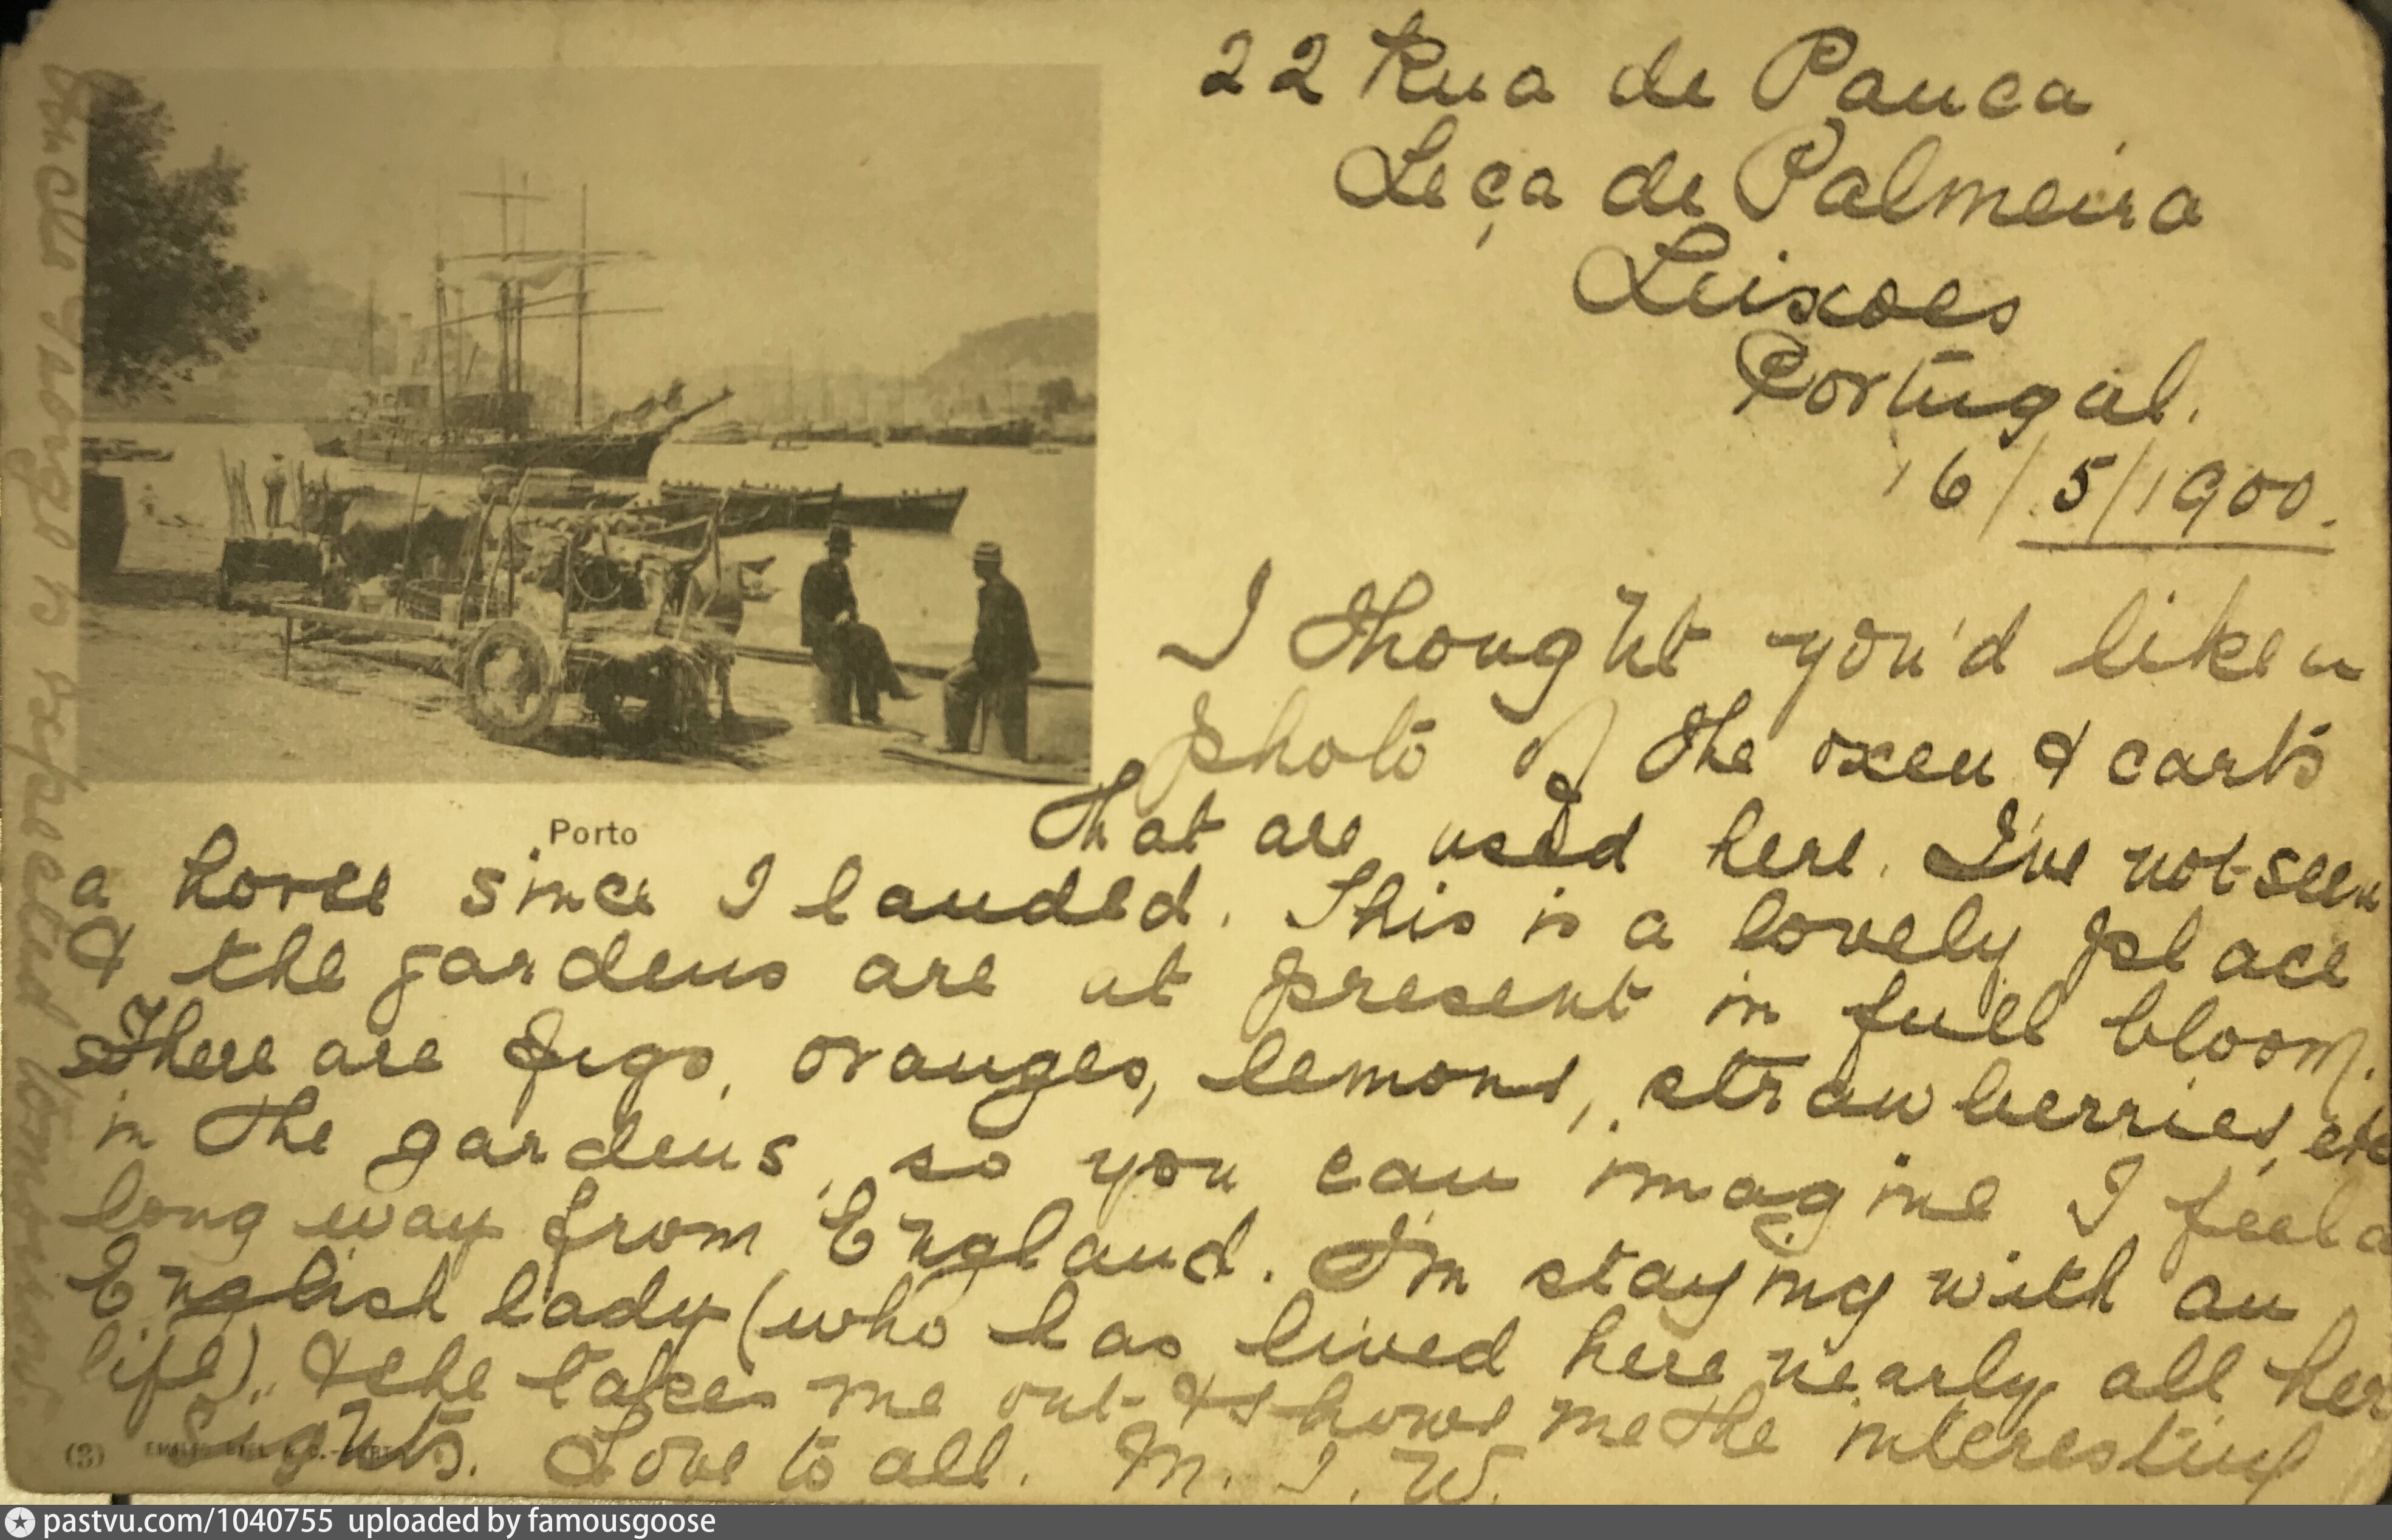 22 Rua de Pauca
Leça de Palmeira
Leixoes
Portugal.
16/5/1900.
I thought you'd like a
photo of the oxen & carts
that are used here. I've not seen
a horse since I landed. This is a lovely place
& the gardens are at present in full bloom.
There are figs, oranges, lemons, strawberries, etc
in the gardens, so you can imagine I feel a
long way from England. I'm staying with an
English lady (who has lived here nearly all her
life), & she takes me out & shows me the interesting
sights. Love to all. M. I. W.
Uncle George is expected tomorrow.
Porto
(3) EMILIO BIEL & C.-PORTO
pastvu.com/1040755 uploaded by famousgoose